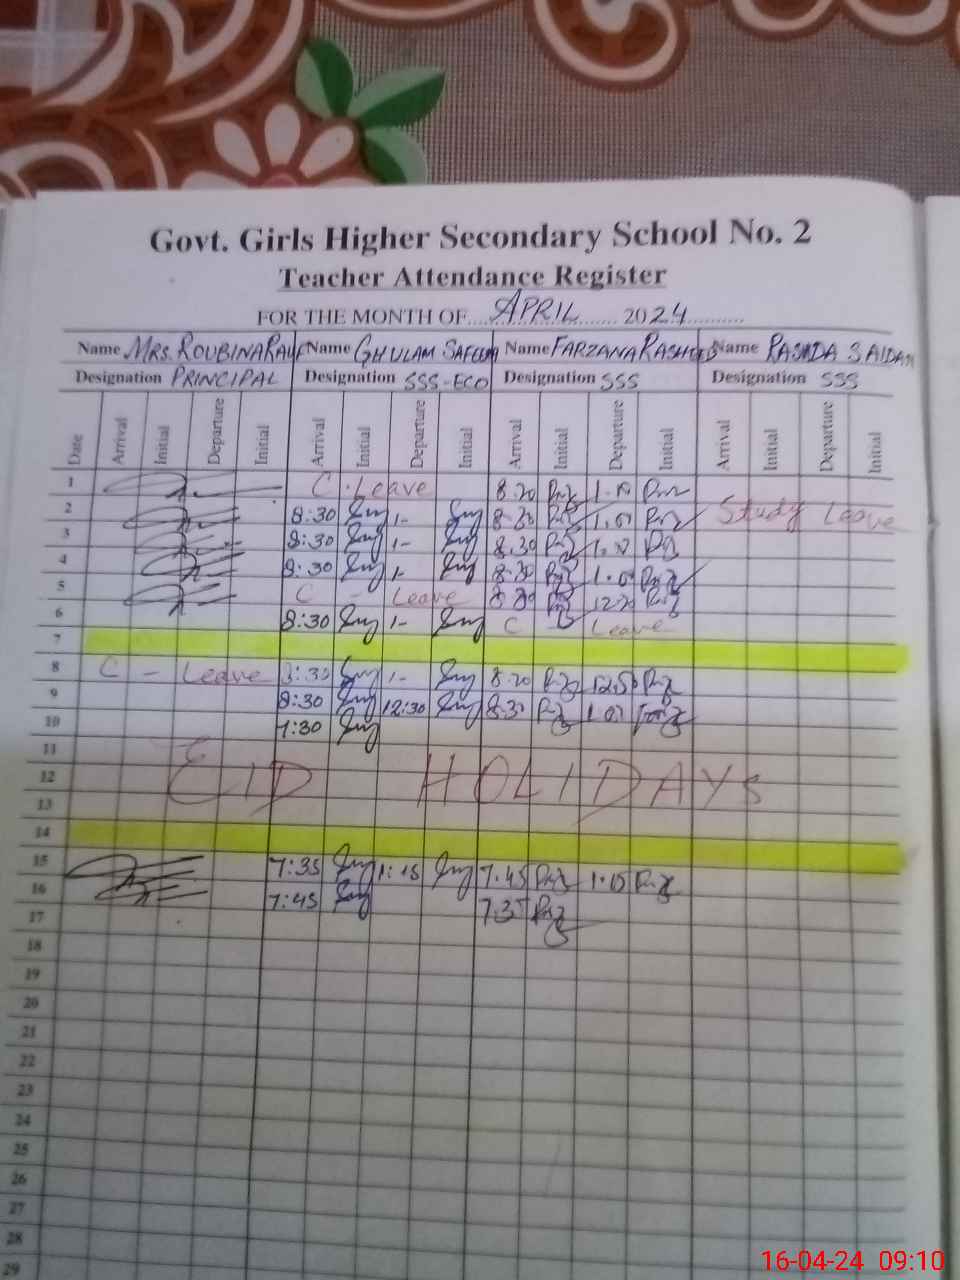 Govt. Girls Higher Secondary School No. 2
Teacher Attendance Register
FOR THE MONTH OF APRIL 2024
Name MRS. ROUBINA RAUF Name GHULAM Name FARZANA RASHEED Name SAIDAN
Designation PRINCIPAL Designation SSS-ECO Designation SSS Designation SSS
Date Arrival Initial Departure Initial Arrival Initial Departure Initial Arrival Initial Departure Initial Arrival Initial Departure Initial
1 C. Leave 8.20
2 8:30 1- 8-30 1.00 Study Leave
3 8:30 1- 8.30
4 8:30 1- 8-30 1.00
5 C - Leave 8 30 12.30
6 8:30 1- C - Leave
7
8 C - Leave 8:30 1- 8.20 12.50
9 8:30 12:30 8.30 1.00
10 7:30
11
12 EID HOLIDAYS
13
14
15 7:35 1:15 7.45 1.15
16 7:45 7.35
17
18
19
20
21
22
23
24
25
26
27
28
29
16-04-24 09:10